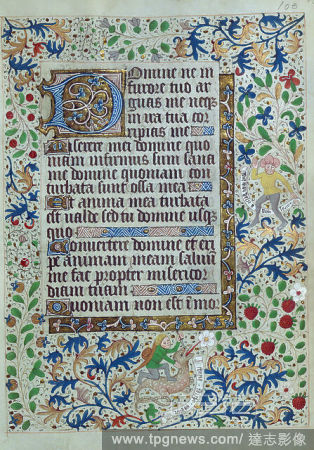 Domine ne in
furore tuo ar
guas me neq
in ira tua cor
ripias me
Miserere mei domine quo
niam infirmus sum sana
me domine quoniam con
turbata sunt ossa mea
Et anima mea turbata
est valde sed tu domine usq
quo
Convertere domine et eri
pe animam meam salvu
me fac propter misericor
diam tuam
Quoniam non est i mor
www.tpgnews.com/達志影像